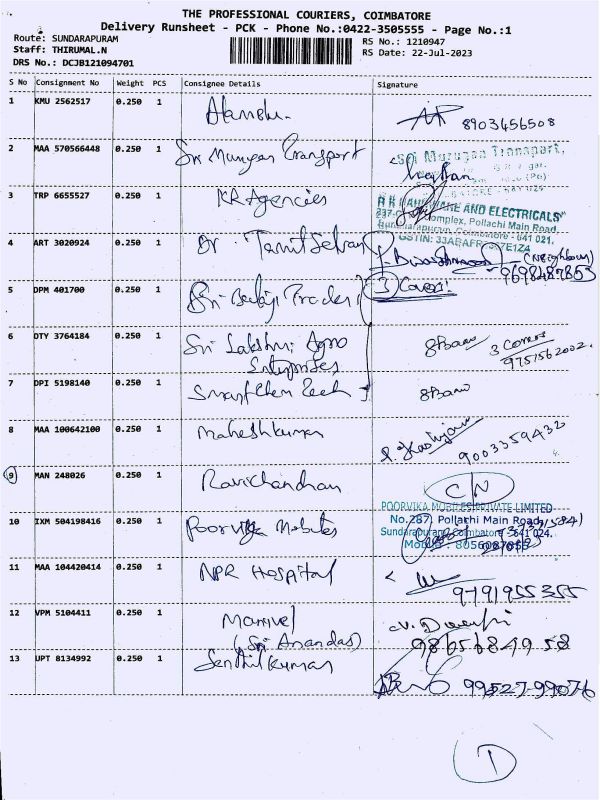 THE PROFESSIONAL COURIERS, COIMBATORE
Delivery Runsheet - PCK - Phone No.:0422-3505555 - Page No.:1
Route: SUNDARAPURAM
Staff: THIRUMAL.N
DRS No.: DCJB121094701
RS No.: 1210947
RS Date: 22-Jul-2023
S No Consignment No Weight PCS Consignee Details Signature
1 KMU 2562517 0.250 1 8903456508
2 MAA 570566448 0.250 1 Sri Murugan Transport
Sri Murugan Transport,
3 TRP 6655527 0.250 1 KR Agencies
HARDWARE AND ELECTRICALS
Complex, Pollachi Main Road,
Sundarapuram, Coimbatore - 641 021.
4 ART 3020924 0.250 1 Dr Tamil Selvan
(Neighbour)
9698487855
5 DPM 401700 0.250 1 Sri Balaji Traders 3 Covers
6 DTY 3764184 0.250 1 Sri Lakshmi Agro
Enterprises
3 Covers
9751562002.
7 DPI 5198140 0.250 1 SmartChem Tech
8 MAA 100642100 0.250 1 Maheshkumar
9003359432
9 MAN 248026 0.250 1 Ravichandran CN
10 IXM 504198416 0.250 1 Poorvika Mobiles
POORVIKA MOBILES PRIVATE LIMITED
No.287, Pollachi Main Road,
Sundarapuram, Coimbatore - 641 024.
11 MAA 104420414 0.250 1 NPR Hospital
9791955355
12 VPM 5104411 0.250 1 Manivel
(Sri Anandas)
9865684958
13 UPT 8134992 0.250 1 Senthilkumar
99527-99076
1